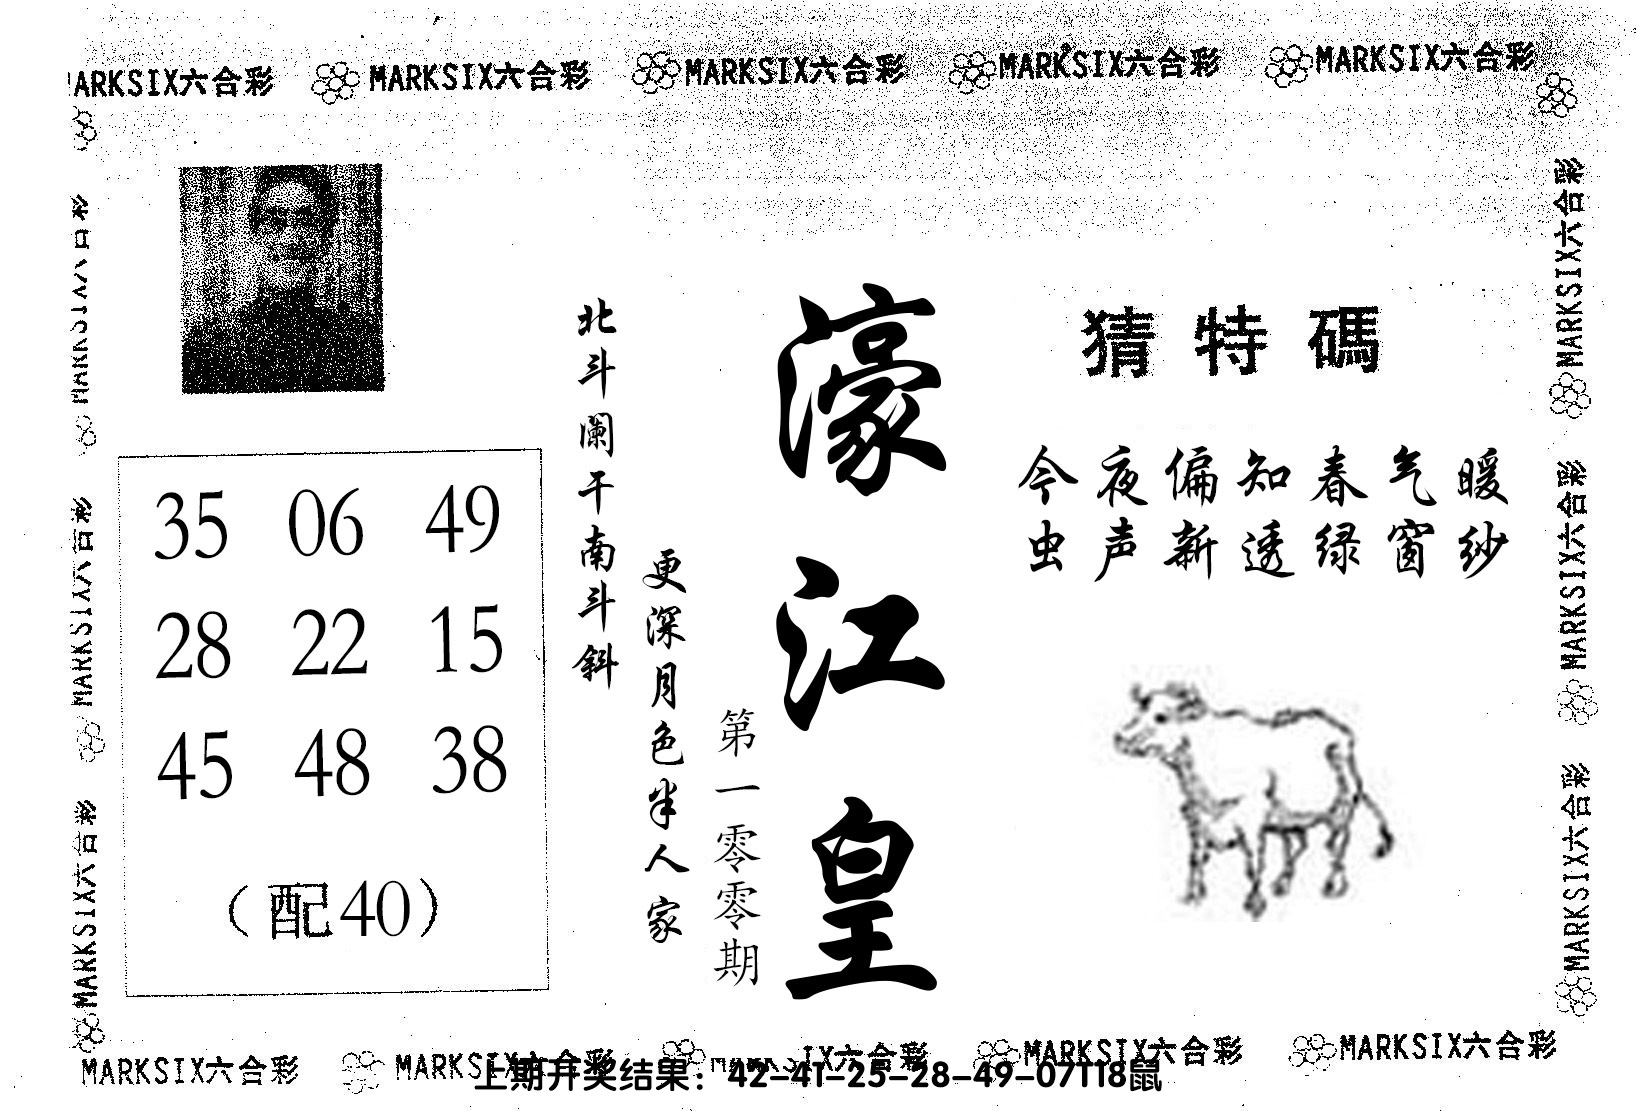 MARKSIX六合彩 MARKSIX六合彩 MARKSIX六合彩 MARKSIX六合彩 MARKSIX六合彩
MARKSIX六合彩
MARKSIX六合彩
MARKSIX六合彩
35 06 49
28 22 15
45 48 38
（配40）
北斗阑干南斗斜
更深月色半人家
第一零零期
濠江皇
猜特碼
今夜偏知春气暖
虫声新透绿窗纱
MARKSIX六合彩
MARKSIX六合彩
MARKSIX六合彩
MARKSIX六合彩 MARKSIX六合彩 MARKSIX六合彩 MARKSIX六合彩 MARKSIX六合彩
上期开奖结果：42-41-25-28-49-07T18鼠